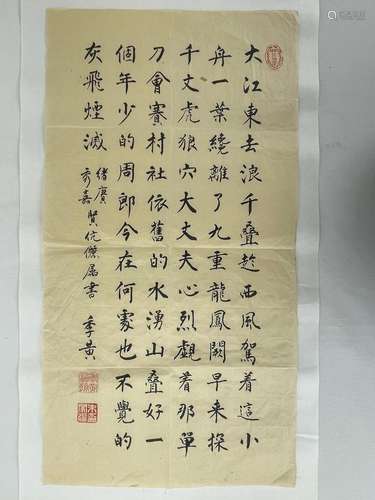 大江東去浪千疊趂西風駕着這小
舟一葉纔離了九重龍鳳闕早来探
千丈虎狼穴大丈夫心烈覷着那單
刀會賽村社依舊的水湧山疊好一
個年少的周郎今在何處也不覺的
灰飛煙滅
緒廣
秀嘉
賢伉儷屬書 季黄